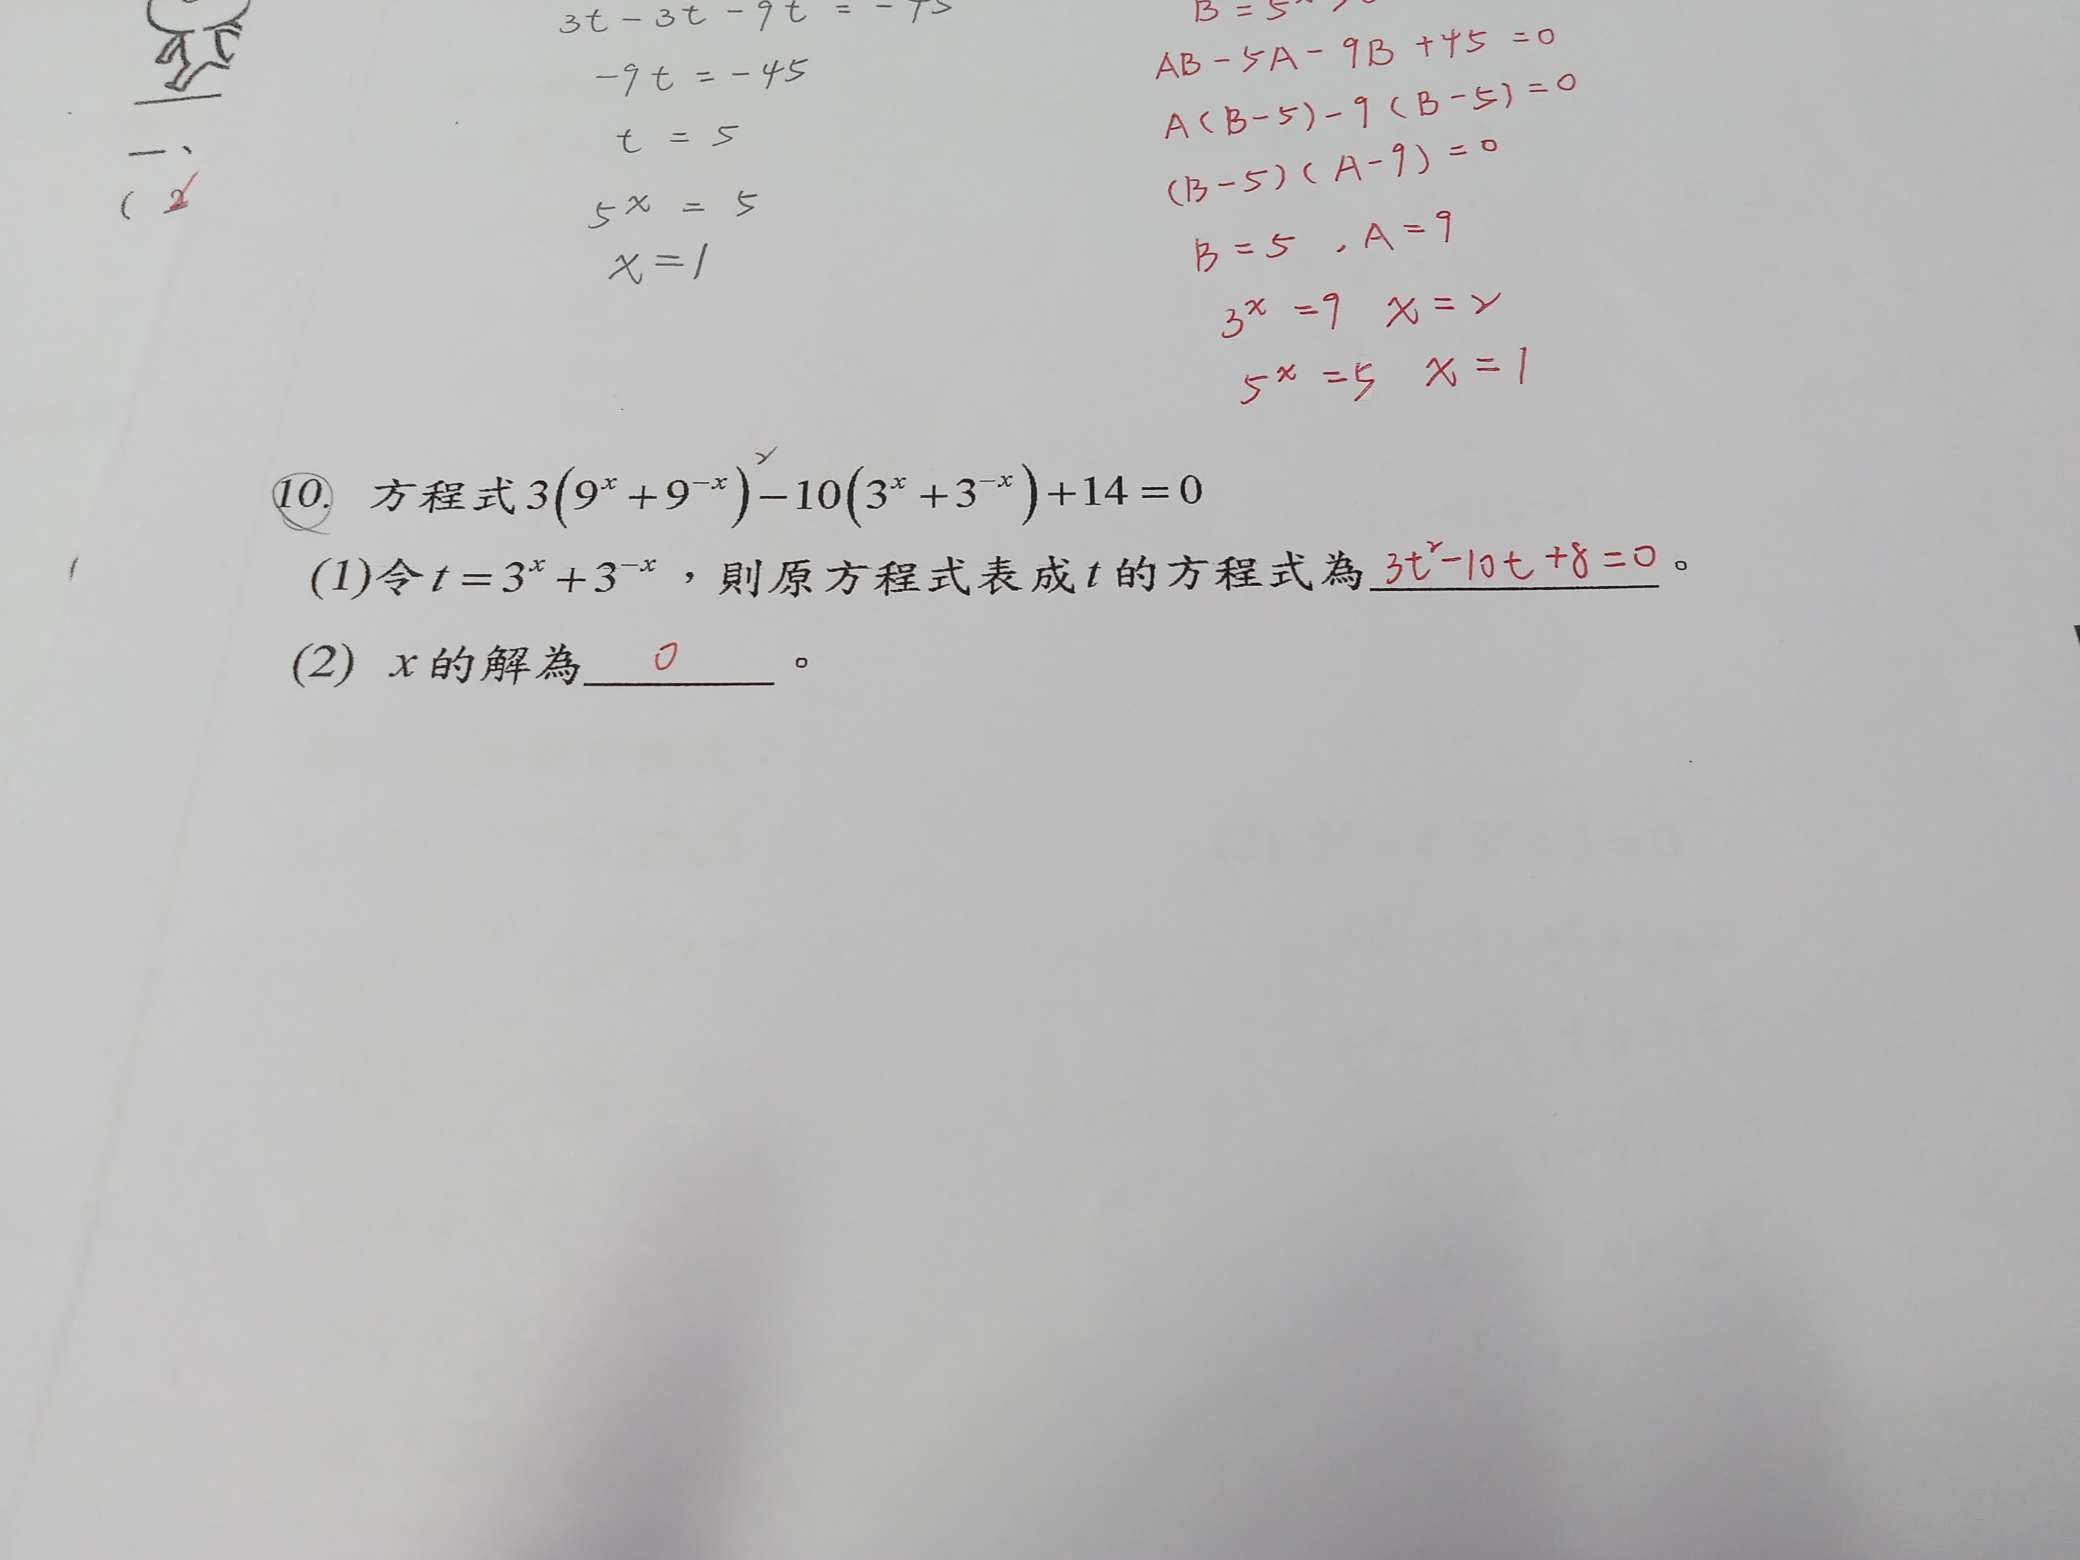 3t - 3t - 9t = -45
-9t = -45
t = 5
5ˣ = 5
x = 1
B = 5ˣ >
AB - 5A - 9B + 45 = 0
A(B-5) - 9(B-5) = 0
(B-5)(A-9) = 0
B = 5 , A = 9
3ˣ = 9 x = 2
5ˣ = 5 x = 1
一、
( 2
10. 方程式3(9ˣ+9⁻ˣ)²-10(3ˣ+3⁻ˣ)+14=0
(1)令t=3ˣ+3⁻ˣ，則原方程式表成t的方程式為3t²-10t+8=0。
(2) x的解為 0 。